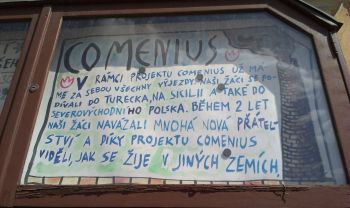 COMENIUS
V RÁMCI PROJEKTU COMENIUS UŽ MÁ-
ME ZA SEBOU VŠECHNY VÝJEZDY. NAŠI ŽÁCI SE PO-
DÍVALI DO TURECKA, NA SICÍLII A TAKÉ DO
SEVEROVÝCHODNÍHO POLSKA. BĚHEM 2 LET
NAŠI ŽÁCI NAVÁZALI MNOHÁ NOVÁ PŘÁTEL-
STVÍ A DÍKY PROJEKTU COMENIUS
VIDĚLI, JAK SE ŽIJE V JINÝCH ZEMÍCH.